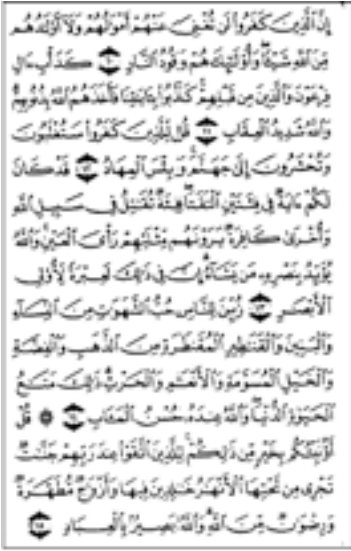 إِنَّ ٱلَّذِينَ كَفَرُوا۟ لَن تُغْنِىَ عَنْهُمْ أَمْوَٰلُهُمْ وَلَآ أَوْلَٰدُهُم
مِّنَ ٱللَّهِ شَيْـًٔا وَأُو۟لَٰٓئِكَ هُمْ وَقُودُ ٱلنَّارِ ١٠ كَدَأْبِ ءَالِ
فِرْعَوْنَ وَٱلَّذِينَ مِن قَبْلِهِمْ كَذَّبُوا۟ بِـَٔايَٰتِنَا فَأَخَذَهُمُ ٱللَّهُ بِذُنُوبِهِمْ
وَٱللَّهُ شَدِيدُ ٱلْعِقَابِ ١١ قُل لِّلَّذِينَ كَفَرُوا۟ سَتُغْلَبُونَ
وَتُحْشَرُونَ إِلَىٰ جَهَنَّمَ وَبِئْسَ ٱلْمِهَادُ ١٢ قَدْ كَانَ
لَكُمْ ءَايَةٌ فِى فِئَتَيْنِ ٱلْتَقَتَا فِئَةٌ تُقَٰتِلُ فِى سَبِيلِ ٱللَّهِ
وَأُخْرَىٰ كَافِرَةٌ يَرَوْنَهُم مِّثْلَيْهِمْ رَأْىَ ٱلْعَيْنِ وَٱللَّهُ
يُؤَيِّدُ بِنَصْرِهِۦ مَن يَشَآءُ إِنَّ فِى ذَٰلِكَ لَعِبْرَةً لِّأُو۟لِى
ٱلْأَبْصَٰرِ ١٣ زُيِّنَ لِلنَّاسِ حُبُّ ٱلشَّهَوَٰتِ مِنَ ٱلنِّسَآءِ
وَٱلْبَنِينَ وَٱلْقَنَٰطِيرِ ٱلْمُقَنطَرَةِ مِنَ ٱلذَّهَبِ وَٱلْفِضَّةِ
وَٱلْخَيْلِ ٱلْمُسَوَّمَةِ وَٱلْأَنْعَٰمِ وَٱلْحَرْثِ ذَٰلِكَ مَتَٰعُ
ٱلْحَيَوٰةِ ٱلدُّنْيَا وَٱللَّهُ عِندَهُۥ حُسْنُ ٱلْمَـَٔابِ ١٤ ۞ قُلْ
أَؤُنَبِّئُكُم بِخَيْرٍ مِّن ذَٰلِكُمْ لِلَّذِينَ ٱتَّقَوْا۟ عِندَ رَبِّهِمْ جَنَّٰتٌ
تَجْرِى مِن تَحْتِهَا ٱلْأَنْهَٰرُ خَٰلِدِينَ فِيهَا وَأَزْوَٰجٌ مُّطَهَّرَةٌ
وَرِضْوَٰنٌ مِّنَ ٱللَّهِ وَٱللَّهُ بَصِيرٌۢ بِٱلْعِبَادِ ١٥